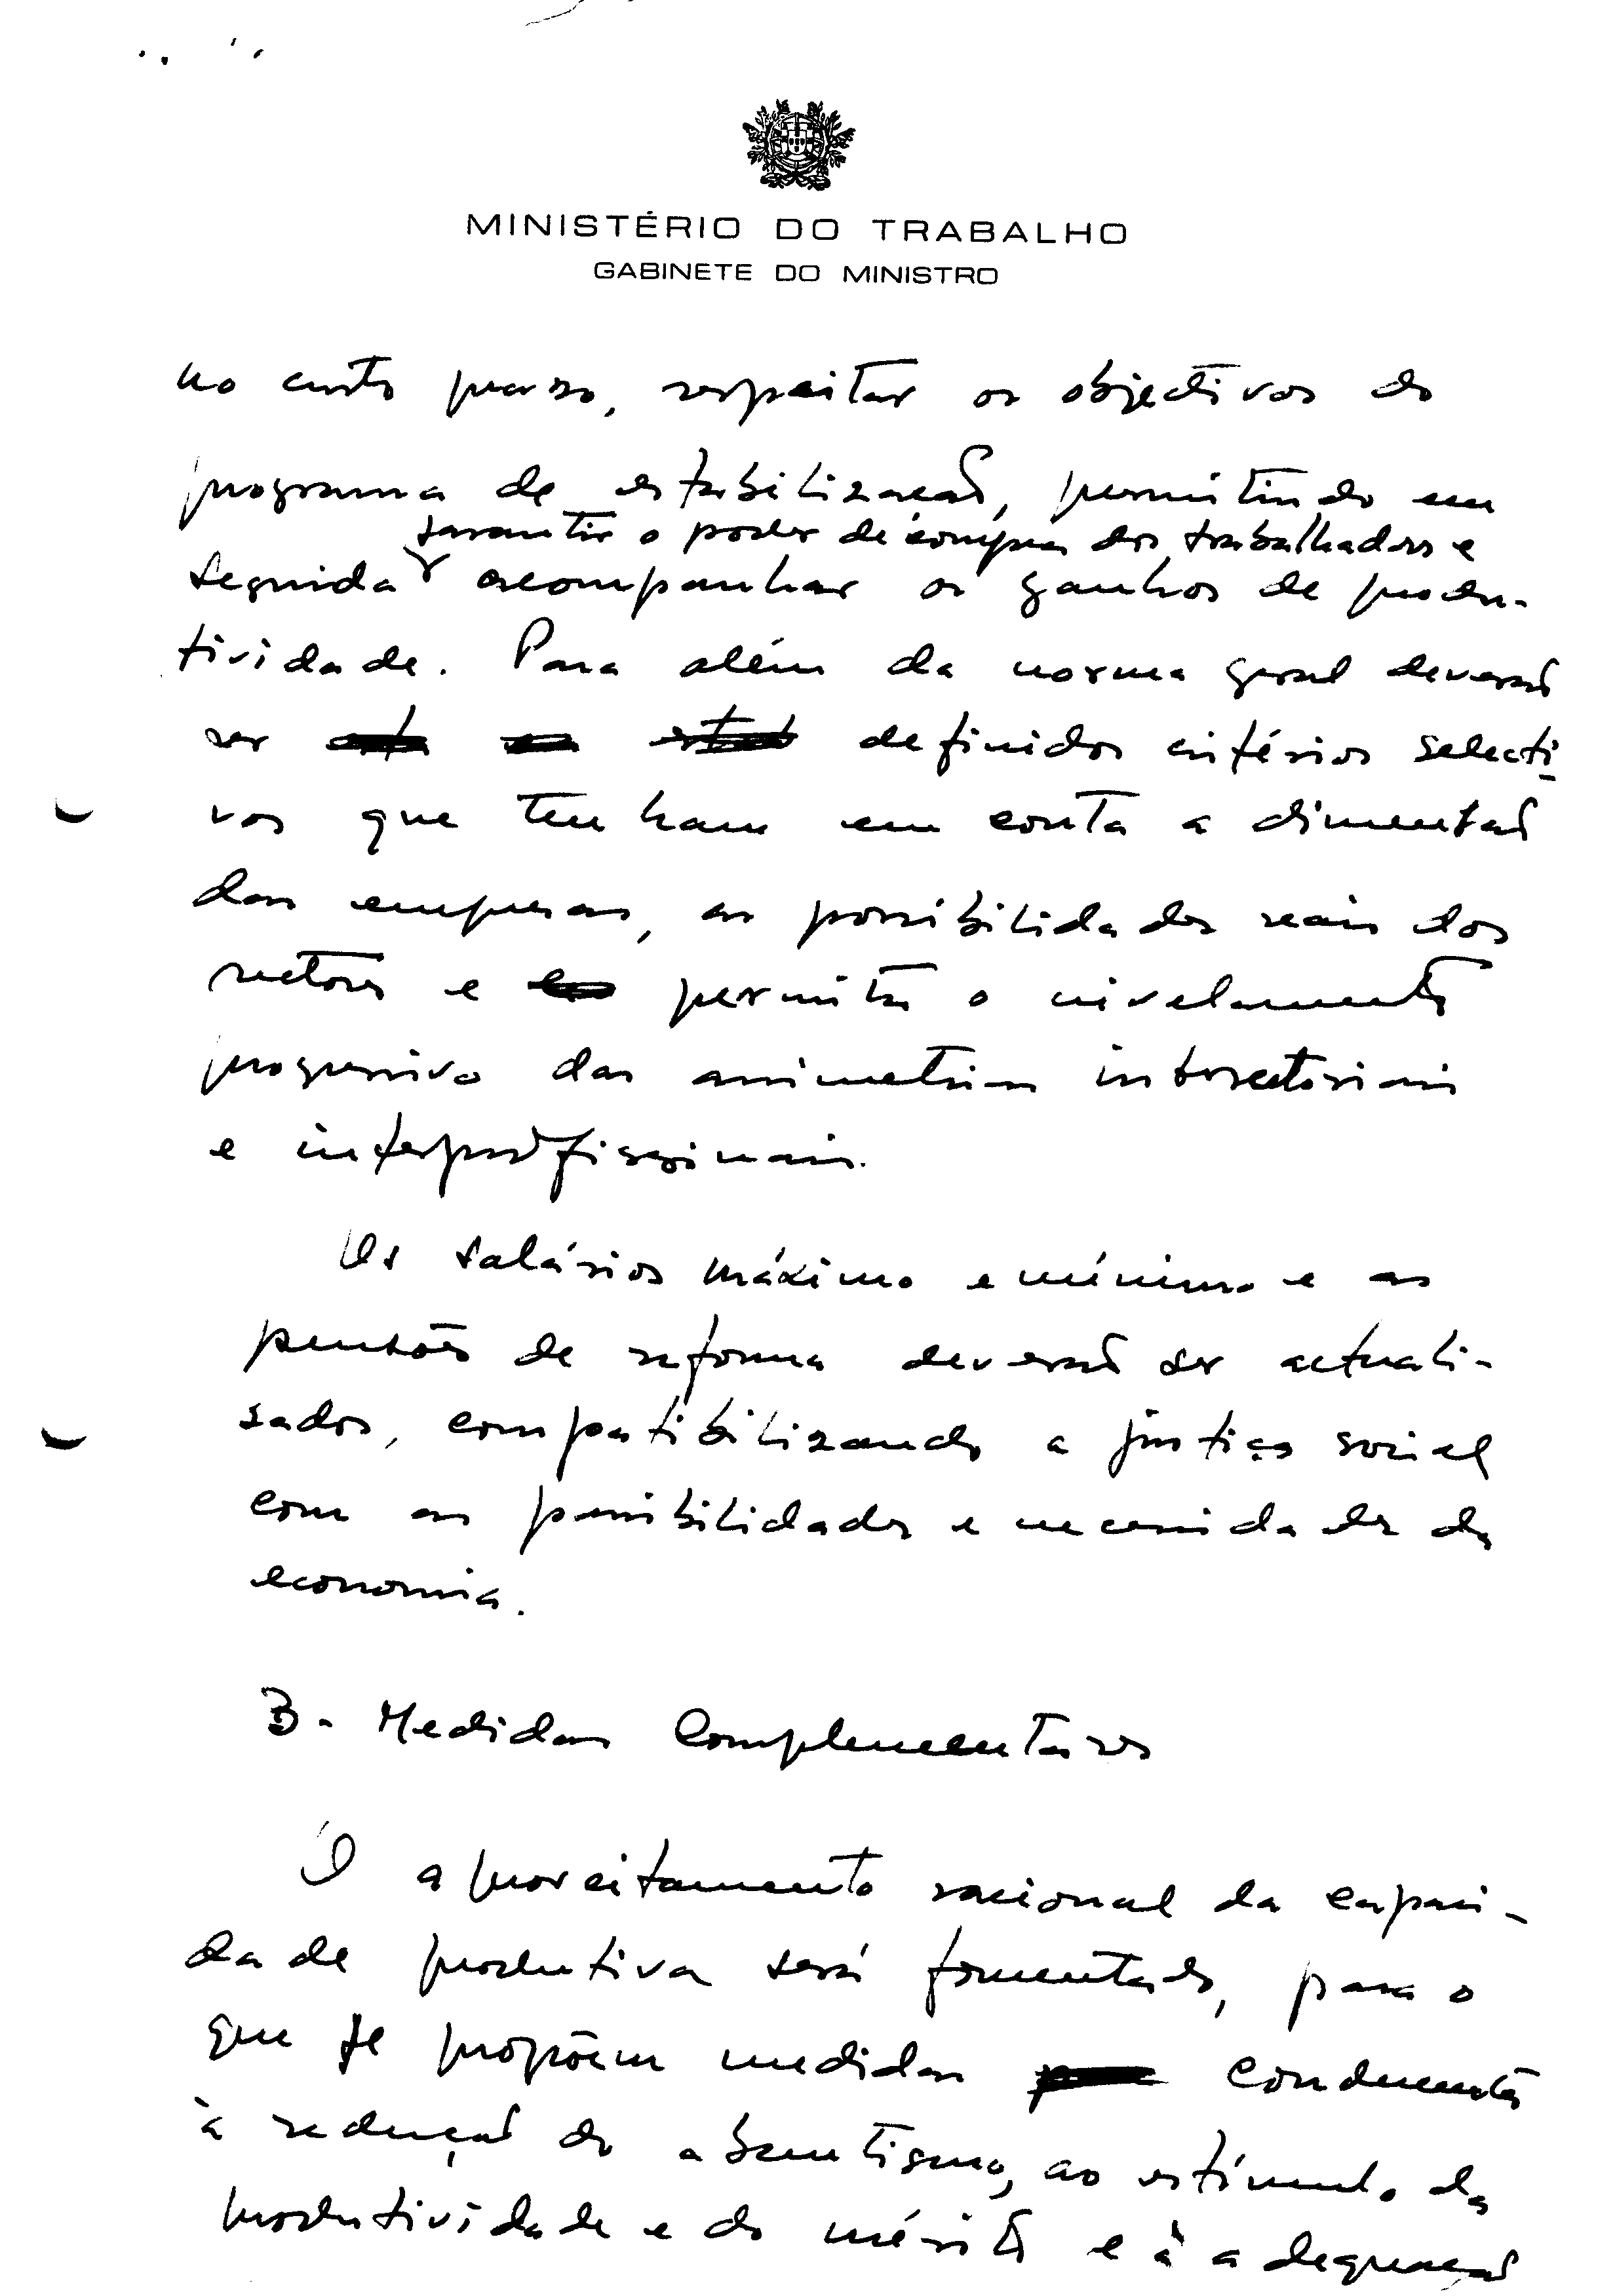 MINISTÉRIO DO TRABALHO
GABINETE DO MINISTRO
no curto prazo, respeitar os objectivos do
programa de estabilização, permitindo em
garantir o poder de compra dos trabalhadores e
seguida acompanhar os ganhos de produ-
tividade. Para além da norma geral deverão
ser definidos critérios selecti-
vos que tenham em conta a dimensão
das empresas, as possibilidades reais dos
sectores e permita o nivelamento
progressivo das assimetrias intersectoriais
e interprofissionais.
Os salários máximo e mínimo e as
pensões de reforma deverão ser actuali-
sados, compatibilizando a justiça social
com as possibilidades e necessidades da
economia.
3 - Medidas Complementares
O aproveitamento racional da capaci-
dade produtiva será fomentado, para o
que se propõem medidas conducentes
à redução do absentismo, ao estímulo da
produtividade e do mérito e à adequação